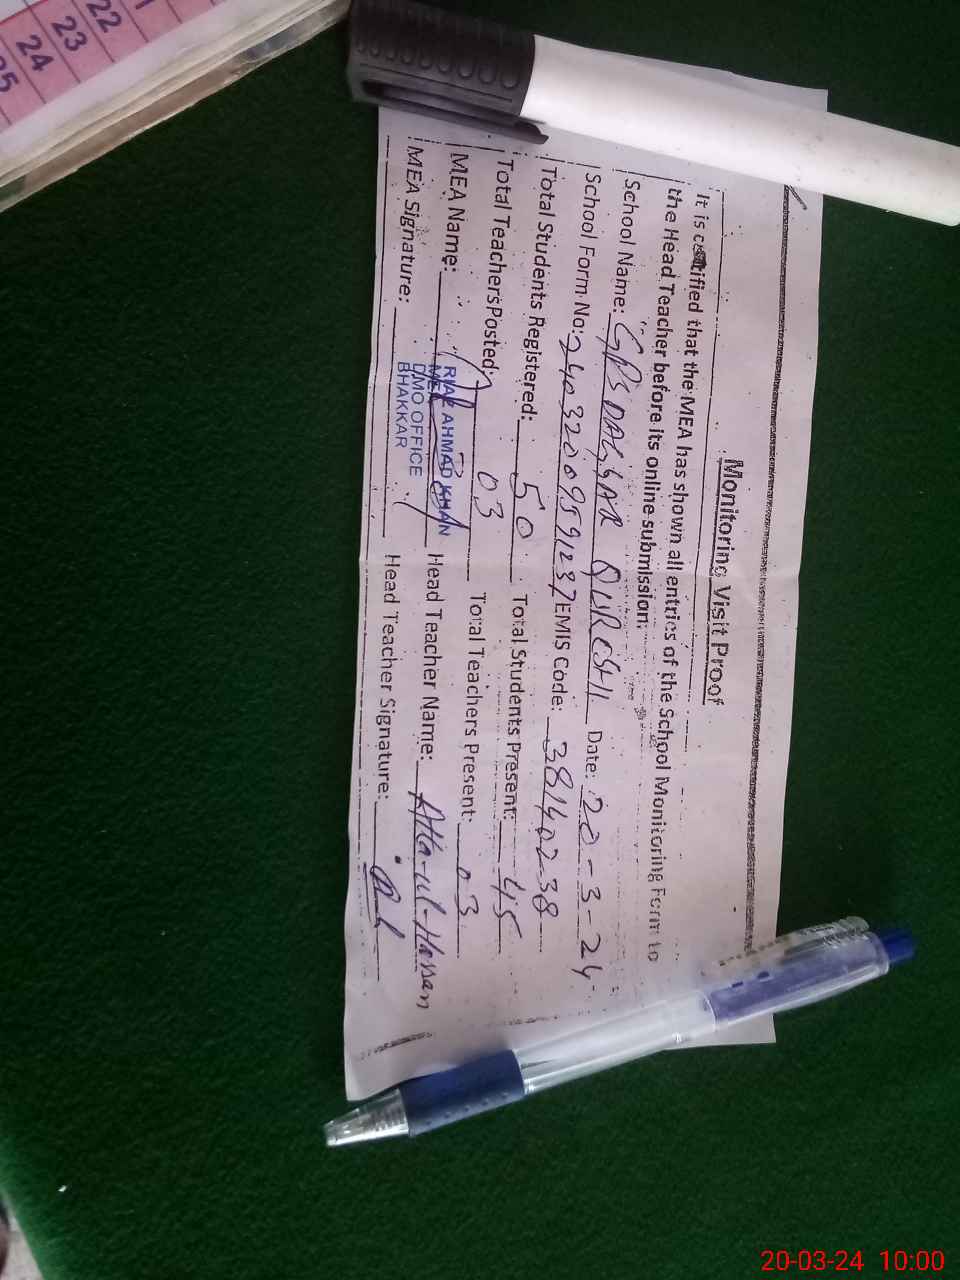 Monitoring Visit Proof
It is certified that the MEA has shown all entries of the School Monitoring Form to
the Head Teacher before its online submission.
School Name: GPS DAGGAR QURESHI Date: 20-3-24
School Form No: 2403200959123 EMIS Code: 38140238
Total Students Registered: 50 Total Students Present: 45
Total Teachers Posted: 03 Total Teachers Present: 03
MEA Name: RIAZ AHMAD KHAN Head Teacher Name: Atta-ul-Hassan
MEA
DMO OFFICE
BHAKKAR
MEA Signature: Head Teacher Signature:
22
23
24
25
PIANO
20-03-24 10:00